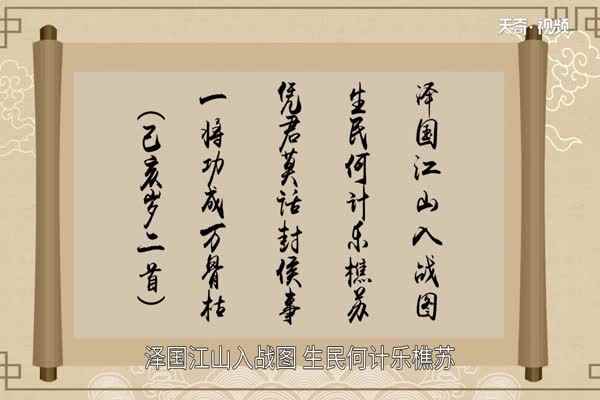 天奇·视频
泽国江山入战图
生民何计乐樵苏
凭君莫话封侯事
一将功成万骨枯
（己亥岁二首）
泽国江山入战图 生民何计乐樵苏